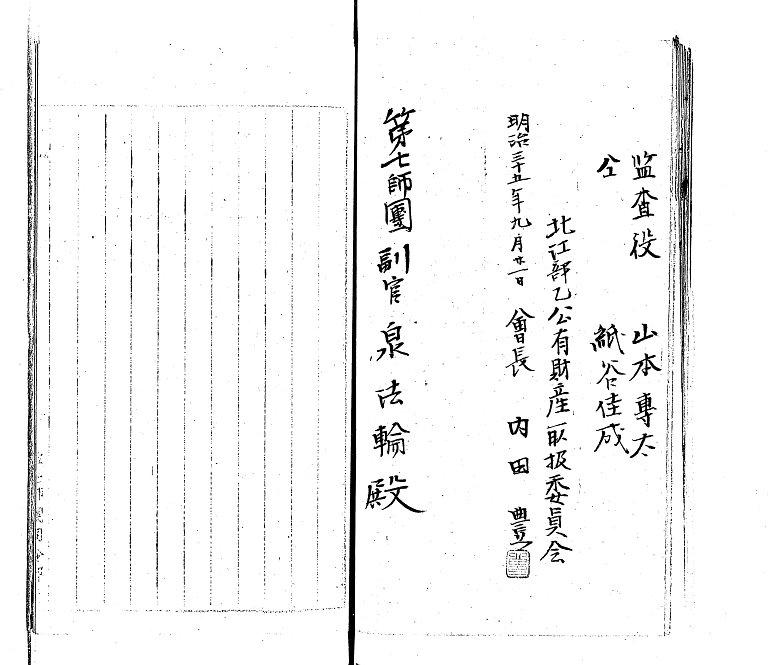 監査役　山本專太
仝　紙谷佳成
北江部乙公有財産取扱委員会
明治三十五年九月廿一日　會長　内田豊
第七師團副官泉法輪殿